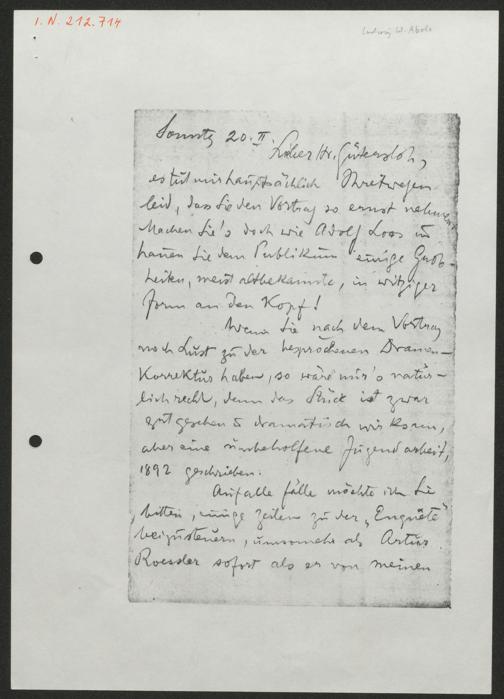 I. N. 212.714
Ludwig W. Abels
Sonntg 20. II.
Lieber Hr. Gütersloh,
es tut mir hauptsächlich Ihretwegen
leid, dass Sie den Vortrag so ernst nehmen
Machen Sie's doch wie Adolf Loos u
hauen Sie dem Publikum einige Grob-
heiten, meist altbekannte, in witziger
Form an den Kopf!
Wenn Sie nach dem Vortrag
noch Lust zu der besprochenen Dramen-
Korrektur haben, so wäre mir's natür-
lich recht, denn das Stück ist zwar
gut gesehen u dramatisch wirksam,
aber eine unbeholfene Jugendarbeit,
1892 geschrieben.
Auf alle fälle möchte ich Sie
bitten, einige Zeilen zu der „Enquête"
beizusteuern, umsomehr als Artur
Roessler sofort als er von meinen